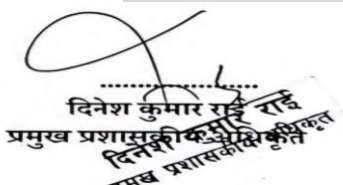 ....................
दिनेश कुमार राई
प्रमुख प्रशासकीय अधिकृत
दिनेश कुमार राई
प्रमुख प्रशासकीय अधिकृत